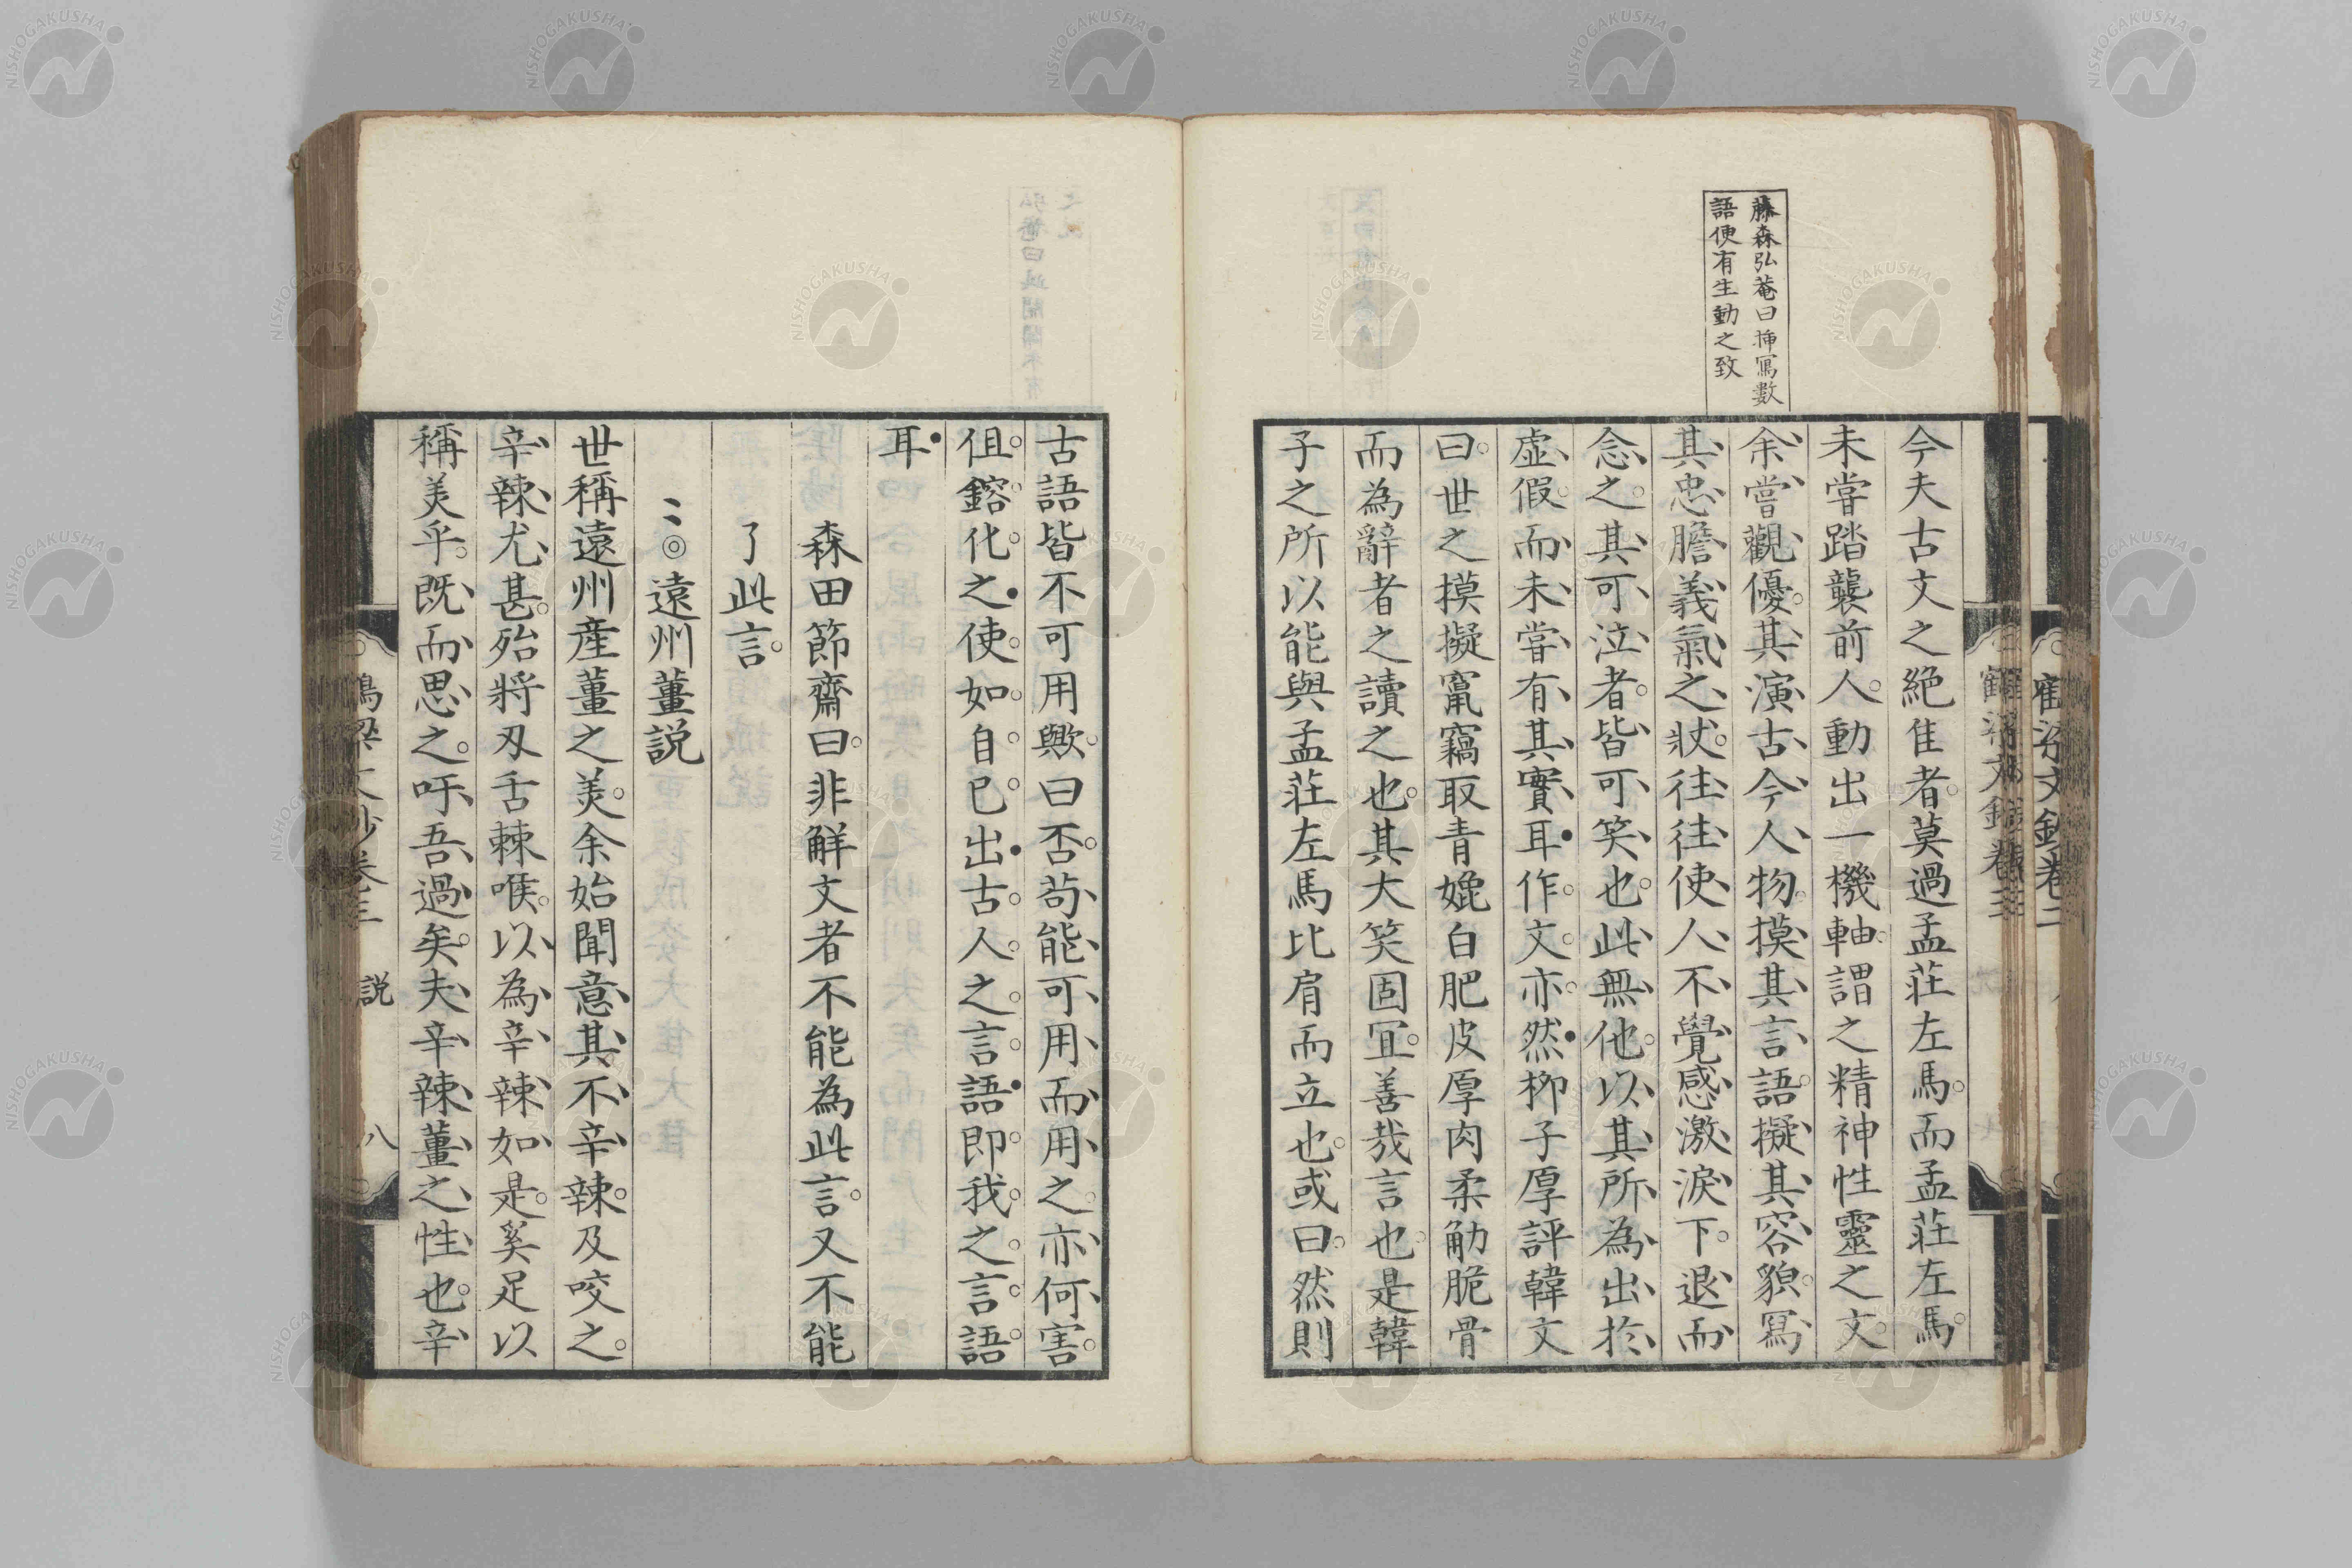 藤森弘菴曰挿冩數
語便有生動之致
今夫古文之絶佳者莫過孟莊左馬而孟莊左馬
未嘗踏襲前人動出一機軸謂之精神性靈之文
余嘗觀優其演古今人物摸其言語擬其容貌冩
其忠膽義氣之狀往往使人不覺感激淚下退而
念之其可泣者皆可笑也此無他以其所為出於
虚假而未嘗有其實耳作文亦然柳子厚評韓文
曰世之摸擬竄竊取青媲白肥皮厚肉柔觔脆骨
而為辭者之讀之也其大笑固宜善哉言也是韓
子之所以能與孟莊左馬比肩而立也或曰然則
古語皆不可用歟曰否苟能可用而用之亦何害
但鎔化之使如自已出古人之言語即我之言語
耳
森田節齋曰非解文者不能為此言又不能
了此言
◎遠州薑説
世稱遠州産薑之美余始聞意其不辛辣及咬之
辛辣尤甚殆將刄舌棘喉以為辛辣如是奚足以
稱美乎既而思之吁吾過矣夫辛辣薑之性也辛
説 八
NISHOGAKUSHA